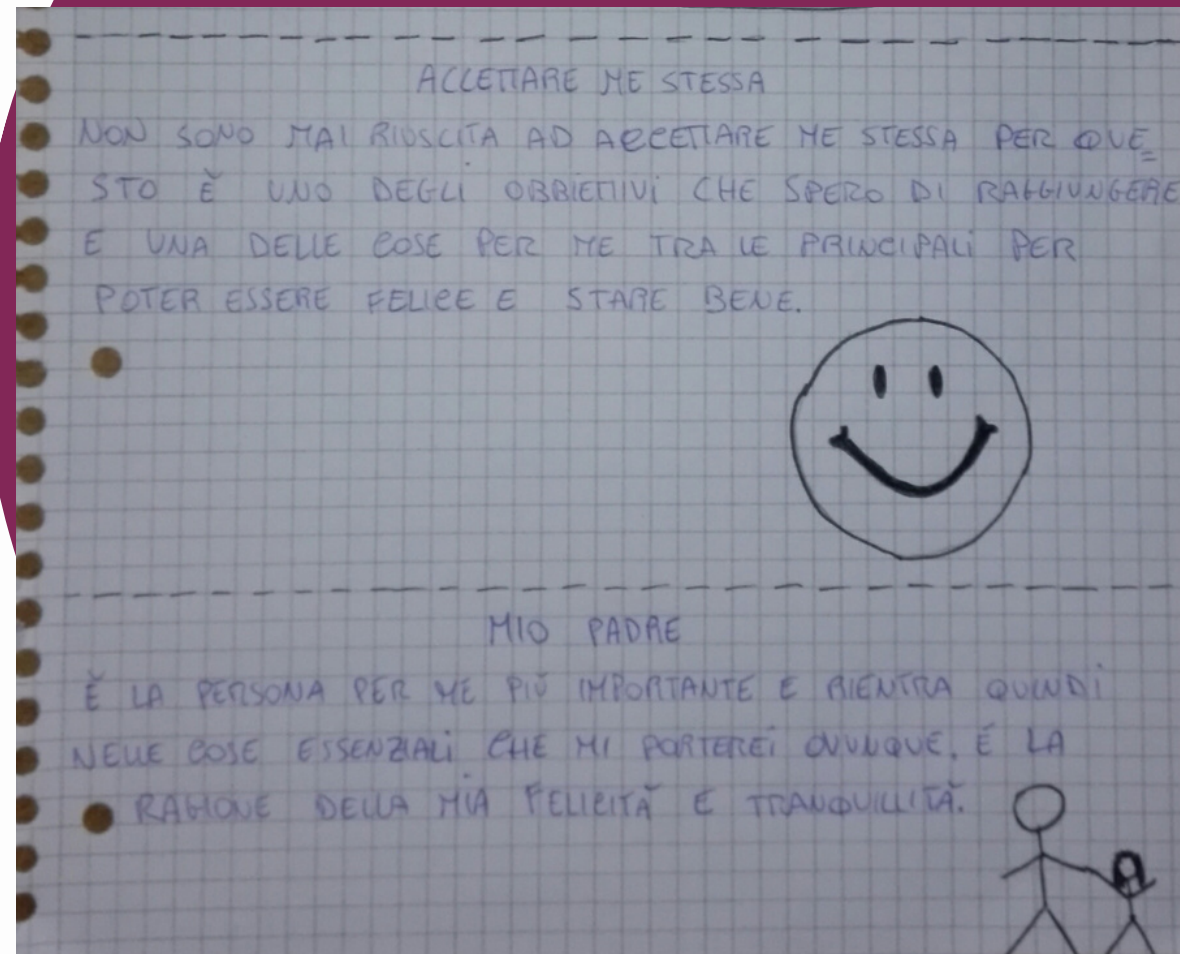 ACCETTARE ME STESSA
NON SONO MAI RIUSCITA AD ACCETTARE ME STESSA PER QUE=
STO È UNO DEGLI OBBIETTIVI CHE SPERO DI RAGGIUNGERE
E UNA DELLE COSE PER ME TRA LE PRINCIPALI PER
POTER ESSERE FELICE E STARE BENE.
MIO PADRE
È LA PERSONA PER ME PIÙ IMPORTANTE E RIENTRA QUINDI
NELLE COSE ESSENZIALI CHE MI PORTEREI OVUNQUE. È LA
RAGIONE DELLA MIA FELICITÀ E TRANQUILLITÀ.